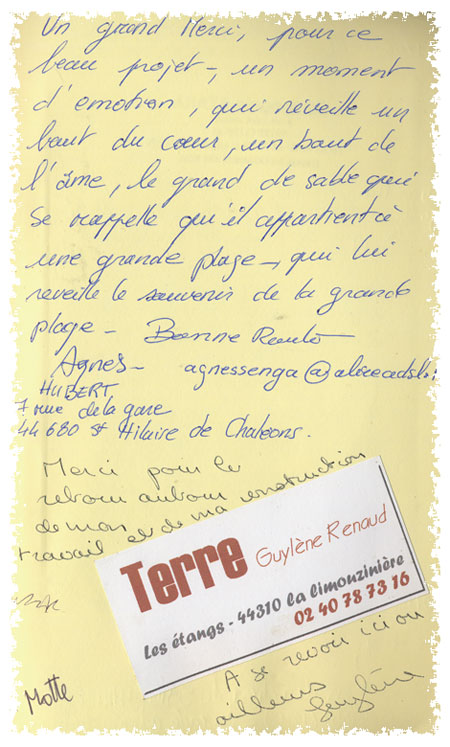 Un grand Merci, pour ce
beau projet -, un moment
d'émotion, qui réveille un
bout du cœur, un bout de
l'âme, le grand de sable qui
se rappelle qu'il appartient à
une grande plage -, qui lui
reveille le souvenir de la grande
plage - Bonne Route
Agnes - agnessenga@aliceadsl.
HUBERT
7 rue de la gare
44 680 St Hilaire de Chaleons.
Merci pour le
retour autour
de mon
travail et de ma construction
Terre Guylène Renaud
Les étangs - 44310 la limouzinière
02 40 78 73 16
A se revoir ici ou
ailleurs
Guylène
Motte